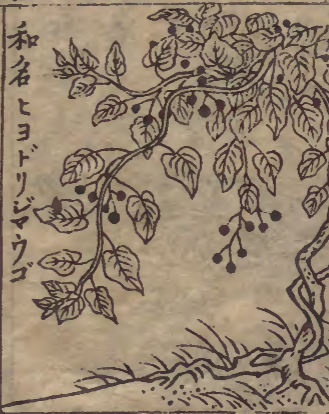 和名ヒヨドリジマウゴ